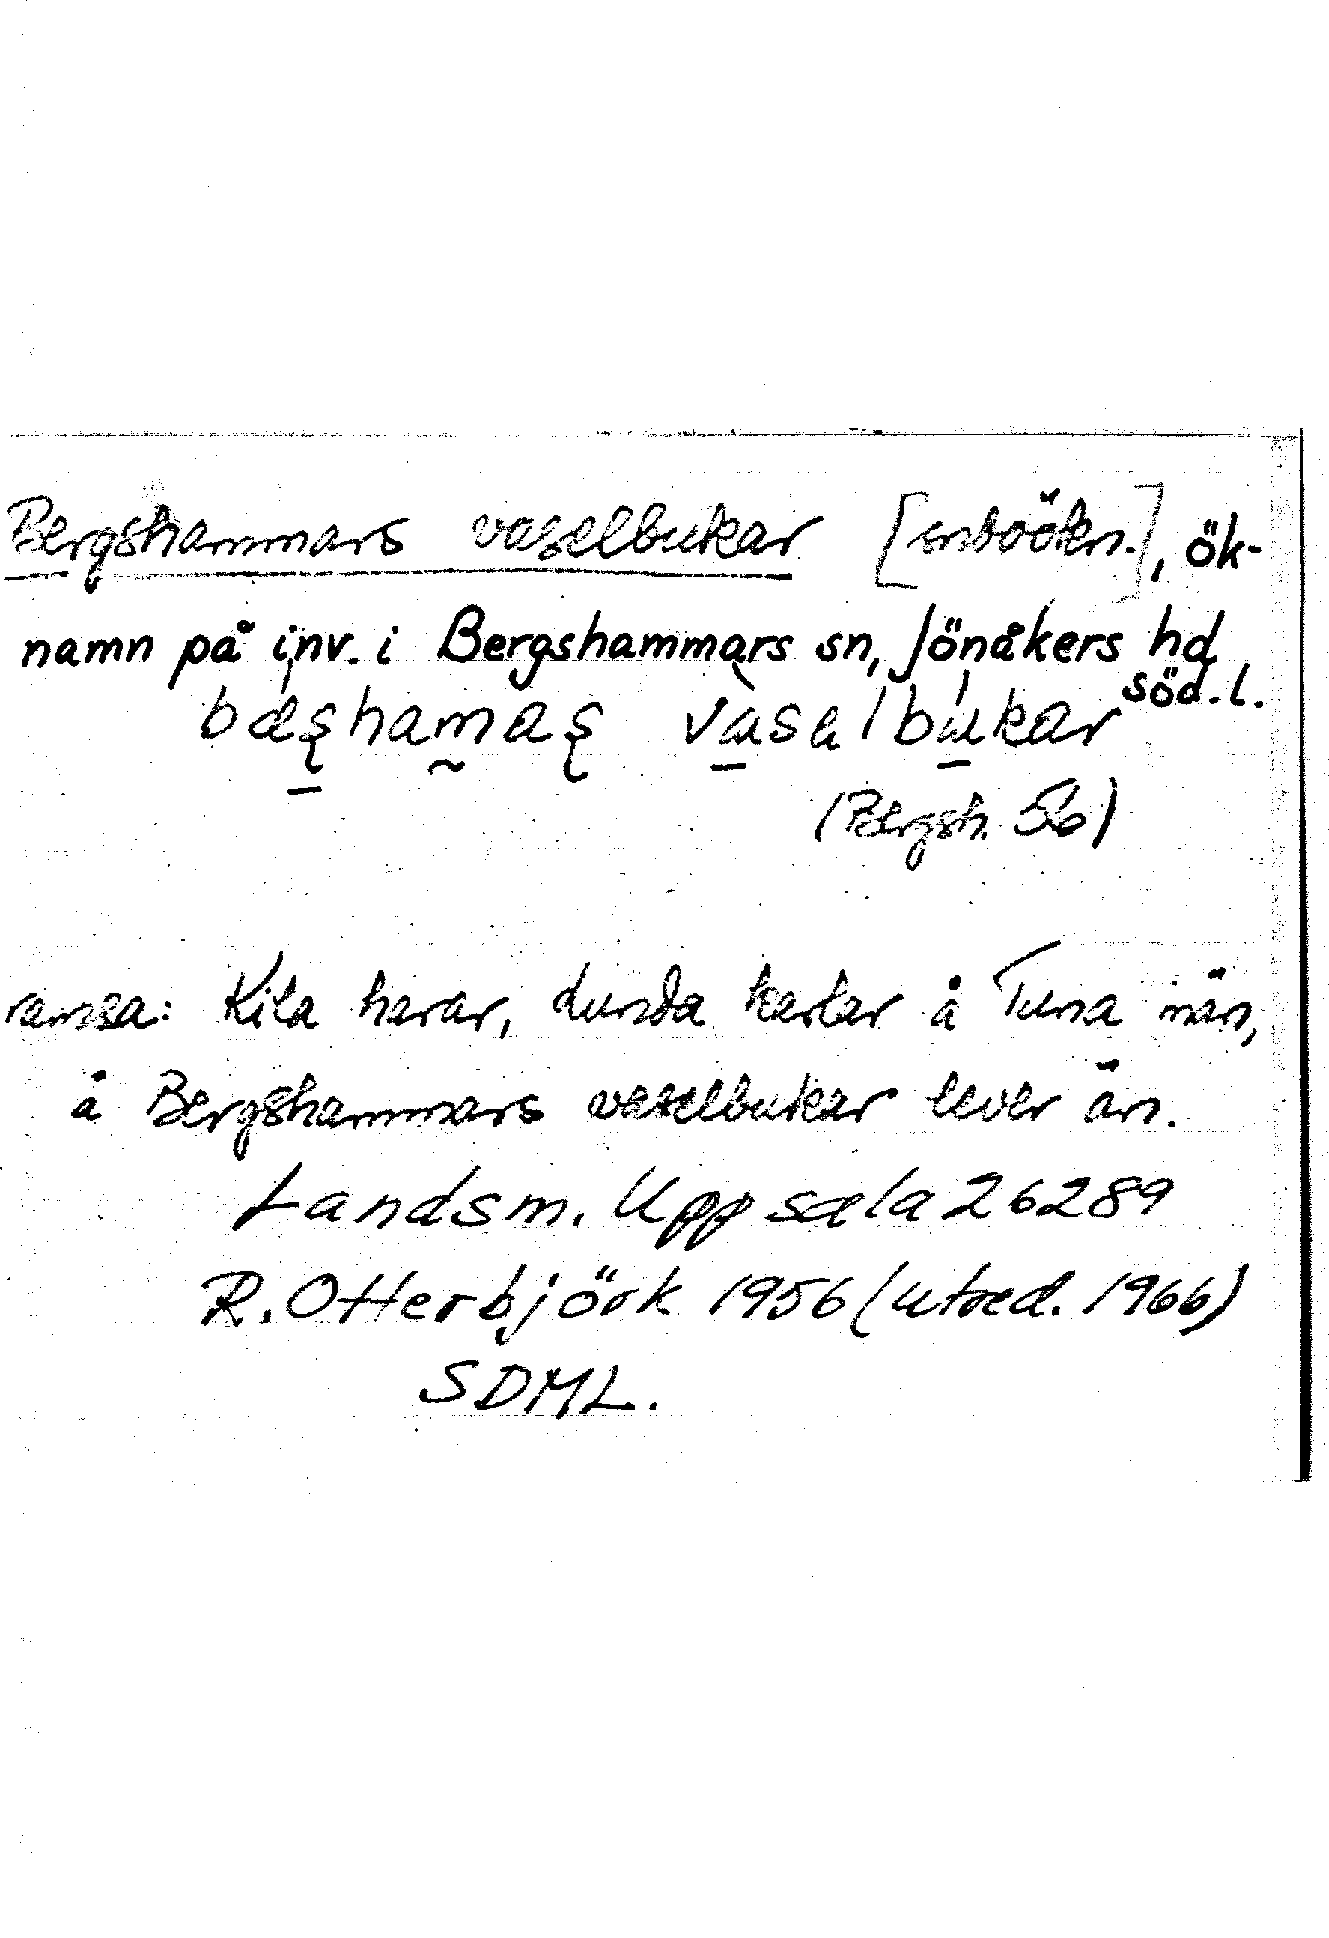 Bergshammars vaselbukar [snboökn.], ök-
namn på inv. i Bergshammars sn, Jönåkers hd
söd. l.
(Bergsh. 56)
ramsa: Kila harar, Lunda karlar å Tuna män,
å Bergshammars vaselbukar lever än.
Landsm. Uppsala 26289
R. Otterbjörk 1956 (utred. 1966)
SDML.